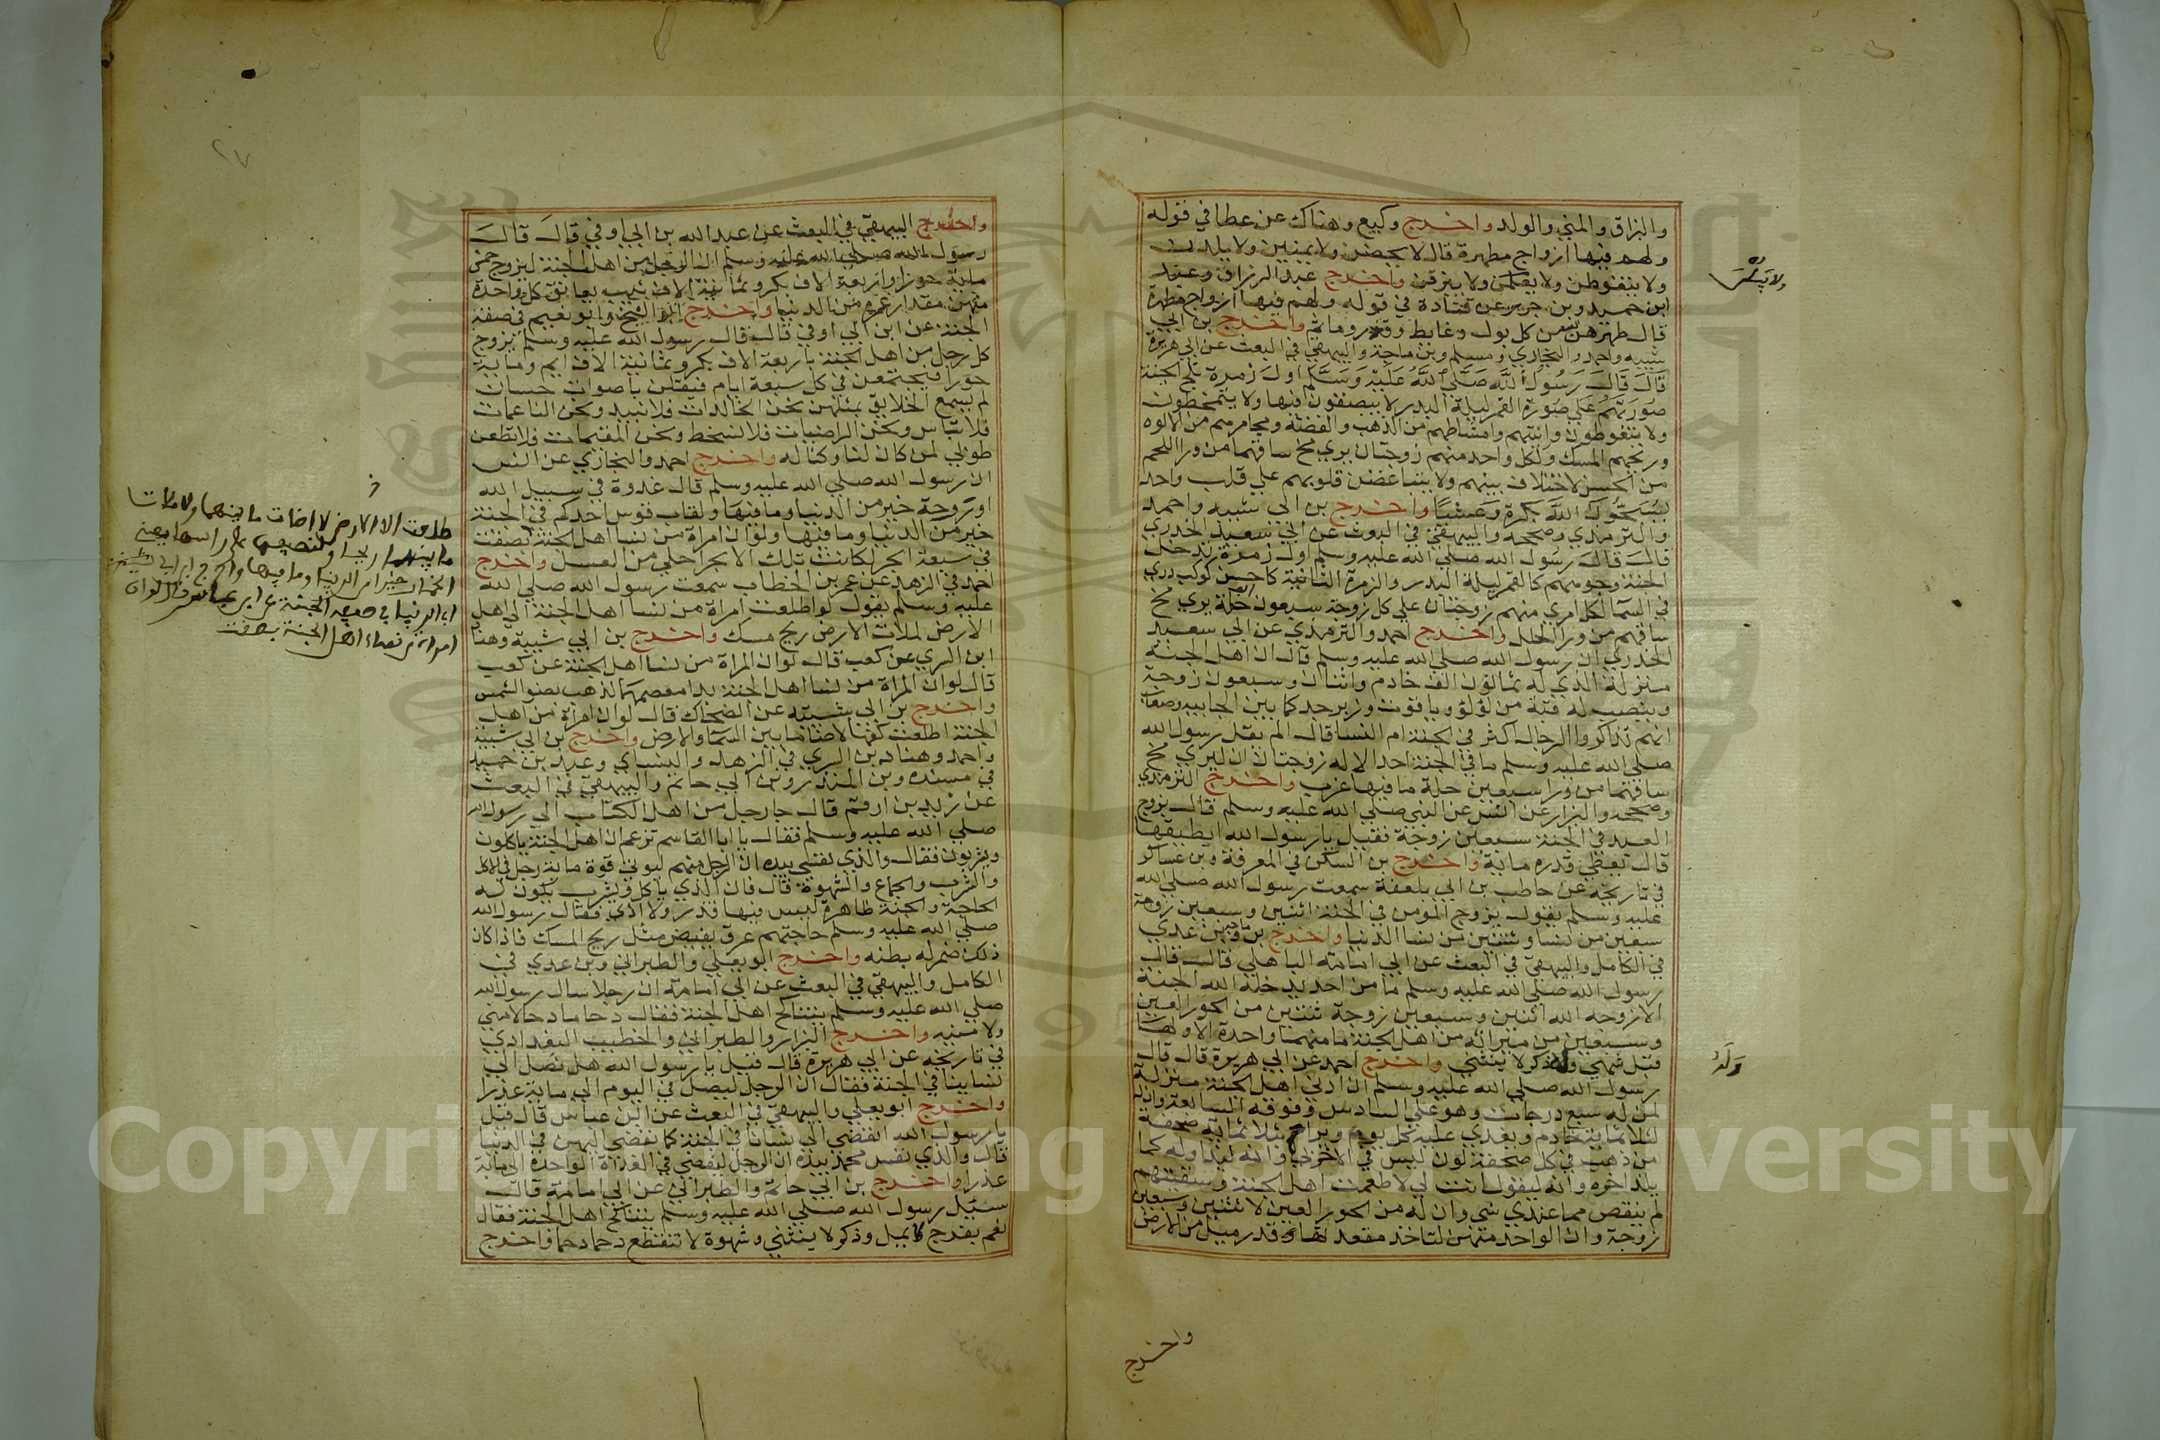 والبزاق والمني والولد واخرج وكيع وهناك عن عطا في قوله
ولهم فيها ازواج مطهرة قال لا يحضن ولا يمنين ولا يلدن
ولا يتغوطن ولا يبزقن واخرج عبد الرزاق وعبد
ابن حميد وبن جرير عن قتادة في قوله ولهم فيها ازواج مطهرة
قال طهرهن من كل بول وغايط وقذر وماثم واخرج بن ابي
شيبه واحمد والبخاري ومسلم وبن ماجة والبيهقي في البعث عن ابي هريرة
قال قال رسول الله صلى الله عليه وسلم اول زمرة تلج الجنة
صورتهم على صورة القمر ليلة البدر لا يبصقون فيها ولا يتمخطون
ولا يتغوطون وانيتهم وامشاطهم من الذهب والفضة ومجامرهم من الالوه
وريحهم المسك ولكل واحد منهم زوجتان يري مخ ساقهما من ورا اللحم
من الحسن لا اختلاف بينهم ولا تباغض قلوبهم علي قلب واحد
يسبحون الله بكرة وعشيا واخرج بن ابي شيبه واحمد
والترمذي وصححه والبيهقي في البعث عن ابي سعيد الخدري
قال قال رسول الله صلي الله عليه وسلم اول زمرة تدخل
الجنة وجوههم كالقمر ليلة البدر والزمرة الثانية كاحسن كوكب دري
في السما لكل امري منهم زوجتان علي كل زوجة سبعون حلة يري مخ
ساقهم من ورا الحلل واخرج احمد والترمذي عن ابي سعيد
الخدري ان رسول الله صلي الله عليه وسلم قال ان اهل الجنة
منزلة الذي له ثمانون الف خادم واثنتان وسبعون زوجة
وينصب له قبة من لؤلؤ وياقوت وزبرجد كما بين الجابيه وصنعا
انهم تذاكروا الرجال اكثر في الجنة ام النسا فقال الم يقل رسول الله
صلي الله عليه وسلم ما في الجنة احد الا له زوجتان ان ليري مخ
ساقهما من ورا سبعين حلة ما فيها عزب واخرج الترمذي
وصححه والبزار عن انس عن النبي صلي الله عليه وسلم قال يزوج
العبد في الجنة سبعين زوجة فقيل يا رسول الله ايطيقها
قال يعطي قوة ماية واخرج بن السكن في المعرفة وبن عساكر
في تاريخه عن حاطب بن ابي بلتعة سمعت رسول الله صلي الله
عليه وسلم يقول يزوج المؤمن في الجنة اثنتين وسبعين زوجة
سبعين من نسا وثنتين من نسا الدنيا واخرج بن ماجه وبن عدي
في الكامل والبيهقي في البعث عن ابي امامة الباهلي قال قال
رسول الله صلي الله عليه وسلم ما من احد يدخله الله الجنة
الا زوجه الله اثنين وسبعين زوجة ثنتين من الحور العين
وسبعين من ميراثه من اهل الجنة ما منهما واحدة الا ولها
قبل شهي وله ذكر لا ينثني واخرج احمد عن ابي هريرة قال قال
رسول الله صلي الله عليه وسلم ان ادني اهل الجنة منزلة
لمن له سبع درجات وهو علي السادس وفوقه السابعة وان له
لثلاثماية خادم ويغدي عليه كل يوم ويراح بثلاثماية صحفة
من ذهب في كل صحفة لون ليس في الاخري وانه ليلذ اوله كما
يلذ اخره وانه ليقول لو اذنت لي لاطعمت اهل الجنة وسقيتهم
لم ينقص مما عندي شي وان له من الحور العين لاثنتين وسبعين
زوجة وان الواحدة منهن لتاخذ مقعدتها قدر ميل من الارض
ولد
واخرج
٢٧
واخرج البيهقي في البعث عن عبد الله بن ابي اوفي قال قال
رسول الله صلي الله عليه وسلم ان الرجل من اهل الجنة ليزوج خمس
ماية حورا واربعة الاف بكر وثمانية الاف ثيب يعانق كل واحدة
منهن مقدار عمره من الدنيا واخرج ابو الشيخ وابو نعيم في صفة
الجنة عن ابن ابي اوفي قال قال رسول الله عليه وسلم يزوج
كل رجل من اهل الجنة باربعة الاف بكر وثمانية الاف ايم وماية
حورا فيجتمعن في كل سبعة ايام فيقلن باصوات حسان
لم يسمع الخلايق بمثلهن نحن الخالدات فلا نبيد ونحن الناعمات
فلا نباس ونحن الراضيات فلا نسخط ونحن المقيمات فلا نظعن
طوبي لمن كان لنا وكنا له واخرج احمد والبخاري عن انس
ان رسول الله صلي الله عليه وسلم قال غدوة في سبيل الله
او روحة خير من الدنيا وما فيها ولقاب قوس احدكم في الجنة
خير من الدنيا وما فيها ولو ان امراة من نسا اهل الجنة بصقت
في سبعة ابحر كانت تلك الابحر احلي من العسل واخرج
احمد في الزهد عن عمر بن الخطاب سمعت رسول الله صلي الله
عليه وسلم يقول لو اطلعت امراة من نسا اهل الجنة الي اهل
الارض لملات الارض ريح مسك واخرج بن ابي شيبة وهناد
ابن السري عن كعب قال لو ان امراة من نسا اهل الجنة عن كعب
قال لو ان امراة من نسا اهل الجنة بدا معصمها لذهب بضو الشمس
واخرج بن ابي شيبه عن الضحاك قال لو ان امراة من اهل
الجنة اطلعت كفها لاضا ما بين السما والارض واخرج بن ابي شيبة
واحمد وهناد بن السري في الزهد والنساي وعبد بن حميد
في مسنده وبن المنذر وبن ابي حاتم والبيهقي في البعث
عن زيد بن ارقم قال جا رجل من اهل الكتاب الي رسول الله
صلي الله عليه وسلم فقال يا ابا القاسم تزعم ان اهل الجنة ياكلون
ويشربون فقال والذي نفسي بيده ان الرجل منهم ليوتي قوة ماية رجل في الاكل
والشرب والجماع والشهوة قال فان الذي ياكل ويشرب يكون له
الحاجة والجنة طاهرة ليس فيها قذر ولا اذي فقال رسول الله
صلي الله عليه وسلم حاجتهم عرق يفيض مثل ريح المسك فاذا كان
ذلك ضمر له بطنه واخرج ابو يعلي والطبراني وبن عدي في
الكامل والبيهقي في البعث عن ابي امامة ان رجلا سال رسول الله
صلي الله عليه وسلم يتناكح اهل الجنة فقال دحاما دحا لا مني
ولا منيه واخرج البزار والطبراني والخطيب البغدادي
في تاريخه عن ابي هريرة قال قيل يا رسول الله هل نصل الي
نساينا في الجنة فقال ان الرجل ليصل في اليوم الي ماية عذرا
واخرج ابو يعلي والبيهقي في البعث عن ابن عباس قال قيل
يا رسول الله انفضي الي نسائنا في الجنة كما نفضي اليهن في الدنيا
قال والذي نفس محمد بيده ان الرجل ليفضي في الغداة الواحدة الي ماية
عذرا واخرج بن ابي حاتم والطبراني عن ابي امامة قال
سئل رسول الله صلي الله عليه وسلم يتناكح اهل الجنة فقال
نعم بفرج لا يمل وذكر لا ينثني وشهوة لا تنقطع دحما دحما واخرج
طلعت الى الارض لاضات ما بينهما ولملات
ما بينهما ريحا ولنصيفها على راسها يعني
الخمار خير من الدنيا وما فيها واخرج ابن ابي
ابي الدنيا في صفة الجنة عن ابن عباس قال لو ان
امراة من نساء اهل الجنة بصقت
Copyright King Saud University